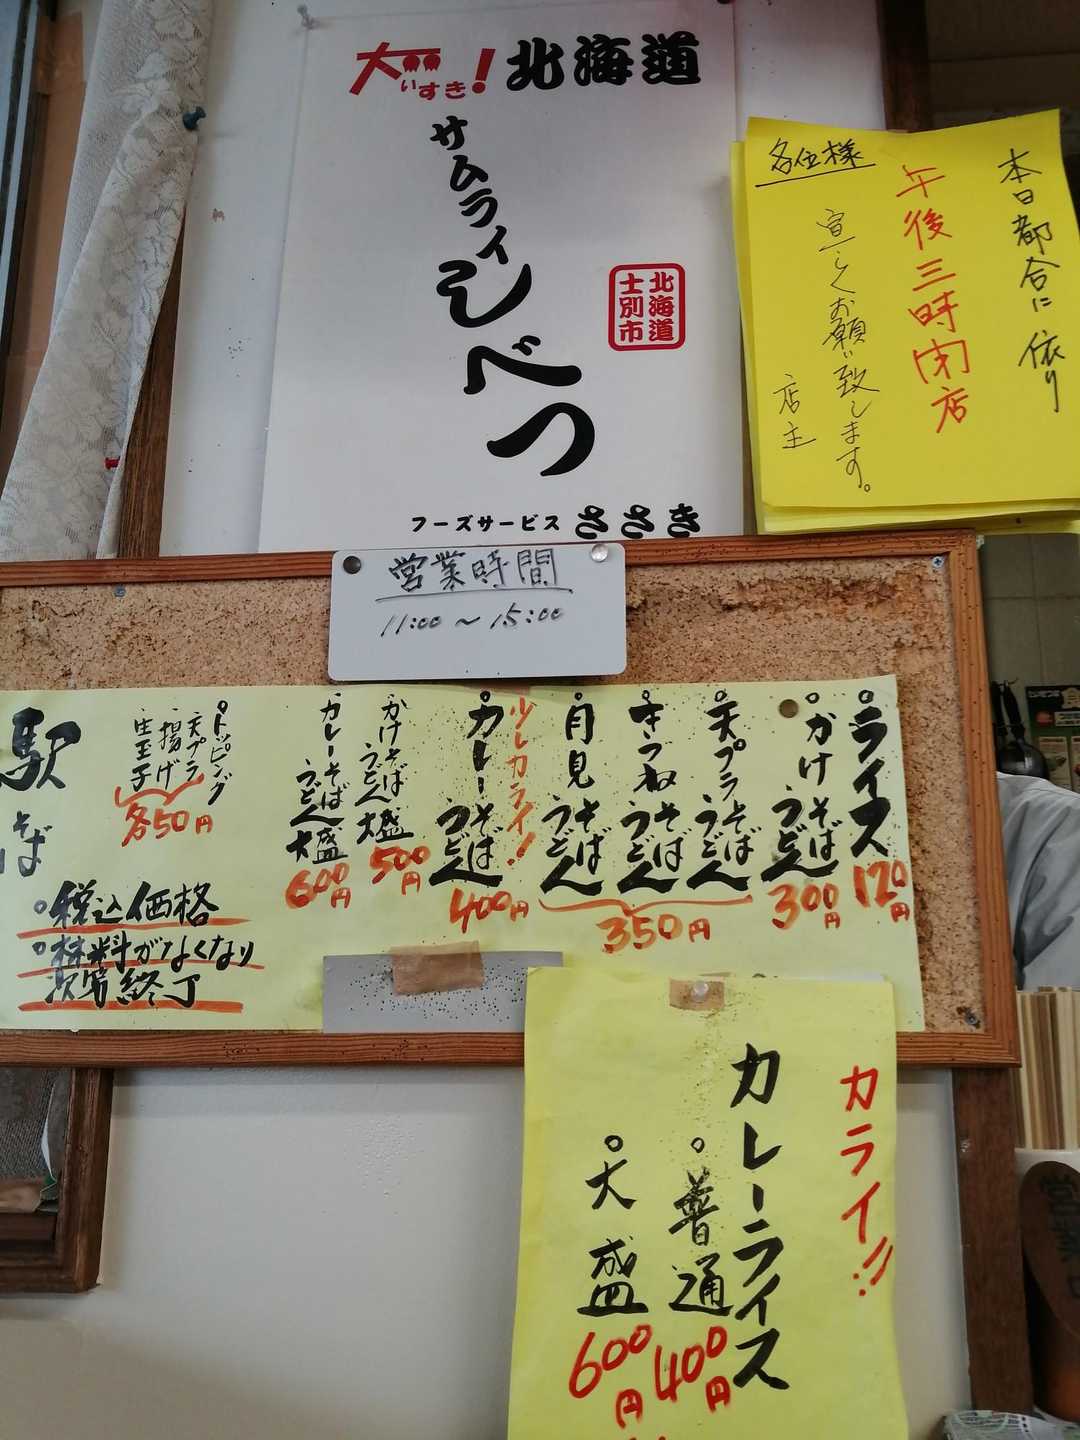 大いすき!北海道
サムライ
しべつ
北海道
士別市
フーズサービス ささき
本日都合に依り
午後三時閉店
各位様
宜しくお願い致します。
店主
営業時間
11:00～15:00
°ライス 120円
°かけそばうどん 300円
°天プラそばうどん
°きつねそばうどん
°月見そばうどん
350円
少しカライ!
°カレーそばうどん 400円
かけそばうどん大盛 500円
カレーそばうどん大盛 600円
°トッピング
天プラ
揚げ
生玉子
各50円
駅そば
°税込価格
°材料がなくなり
次第終了
カライ!!
カレーライス
°普通 400円
°大盛 600円